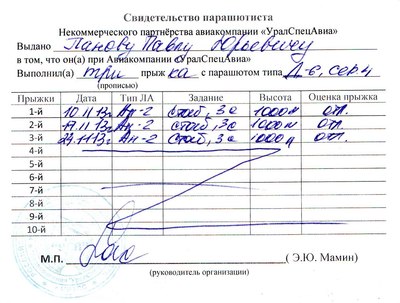 Свидетельство парашютиста
Некоммерческого партнёрства авиакомпании «УралСпецАвиа»
Выдано Панову Павлу Юрьевичу
в том, что он(а) при Авиакомпании «УралСпецАвиа»
Выполнил(а) три прыжка с парашютом типа Д-6, сер. 4
(прописью)
Прыжки Дата Тип ЛА Задание Высота Оценка прыжка
1-й 10.11.13г Ан-2 стаб, 3с 1000м отл.
2-й 17.11.13г Ан-2 стаб, 3с 1000м отл.
3-й 24.11.13г Ан-2 стаб, 3с 1000м отл.
4-й
5-й
6-й
7-й
8-й
9-й
10-й
М.П. (Э.Ю. Мамин)
(руководитель организации)